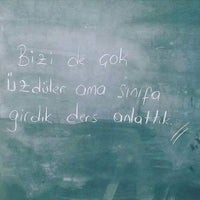 Bizi de çok
üzdüler ama sınıfa
girdik ders anlattık.